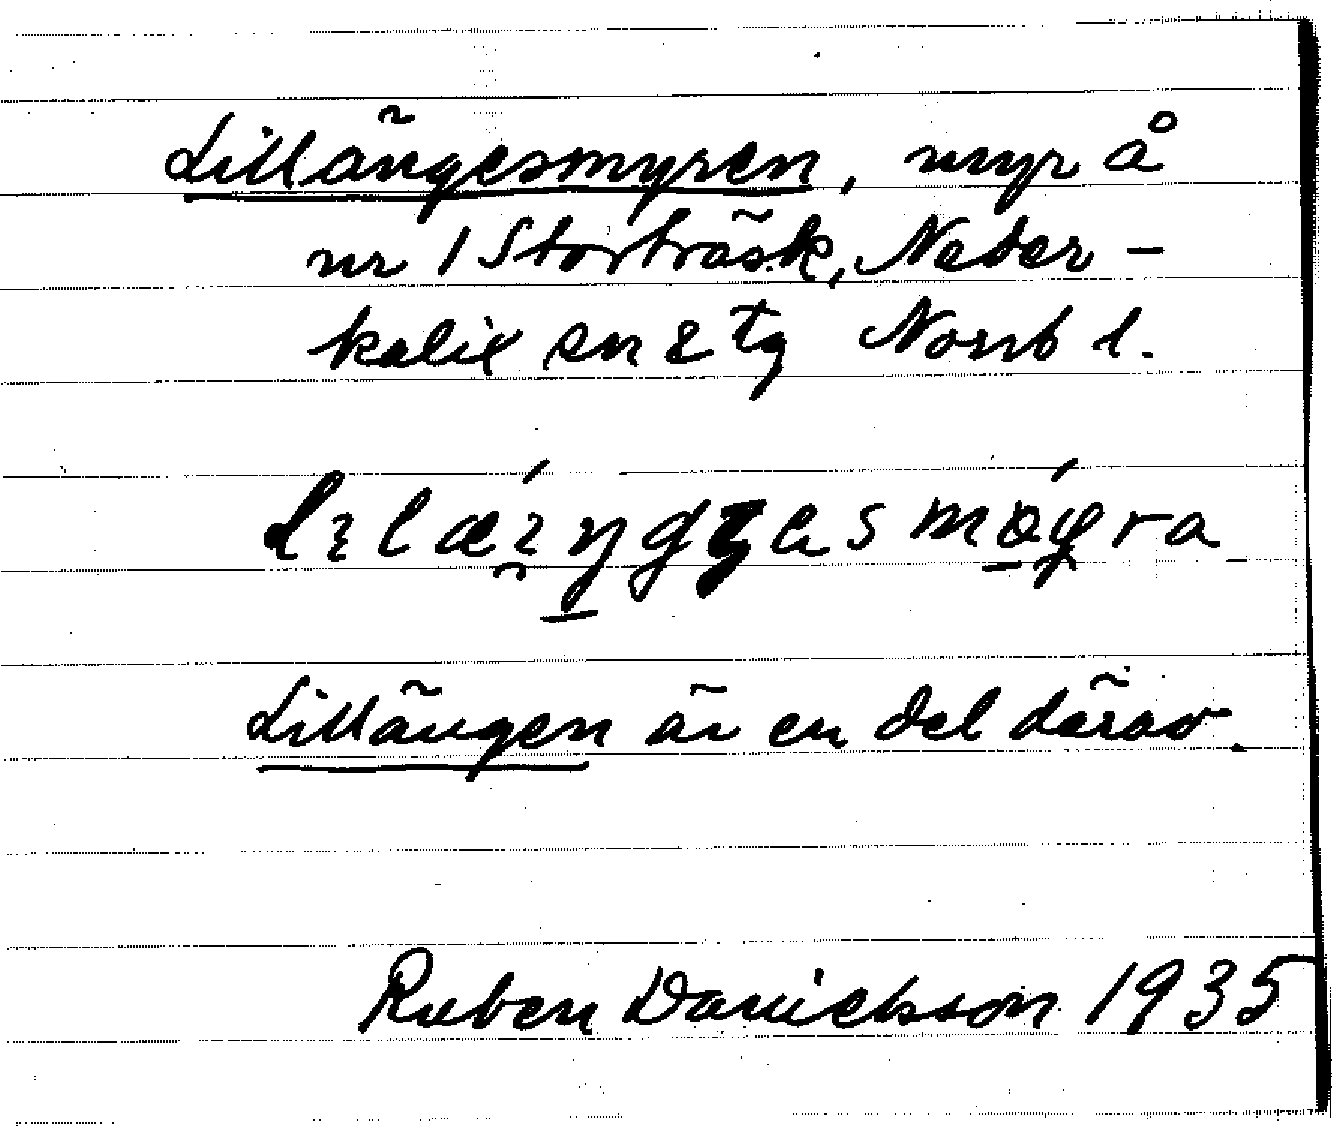 Lillängesmyren, myr å
nr 1 Storträsk, Neder-
kalix sn & tg Norrb l.
Lillängen är en del därav.
Ruben Danielsson 1935